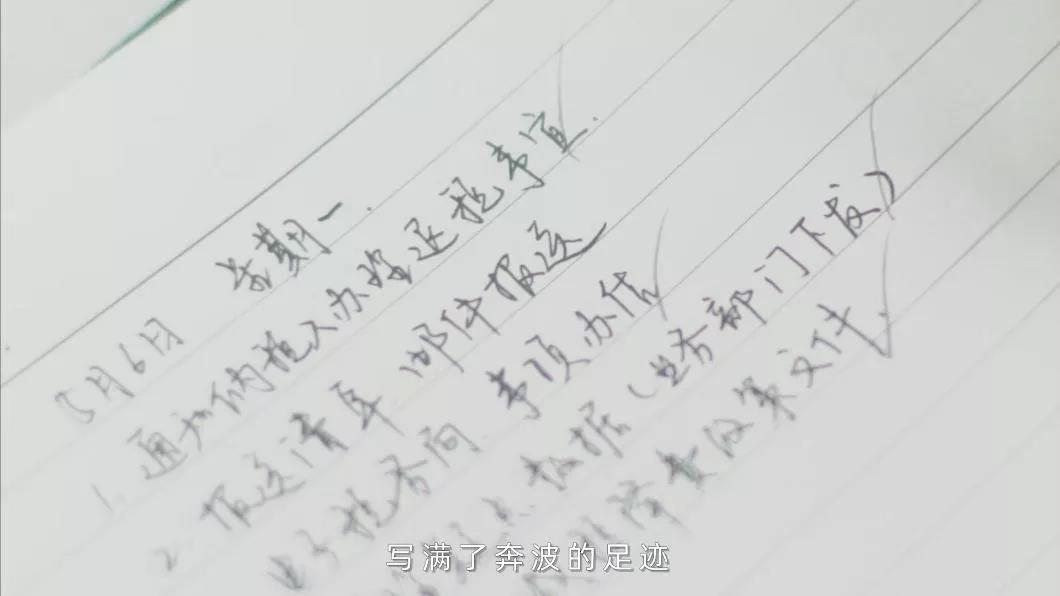 5月6日 星期一.
1. 通知纳税人办理退税事宜.
2. 报送清单 邮件报送
电子税务局 事项办结
数据(业务部门下发)
降费政策文件.
写满了奔波的足迹